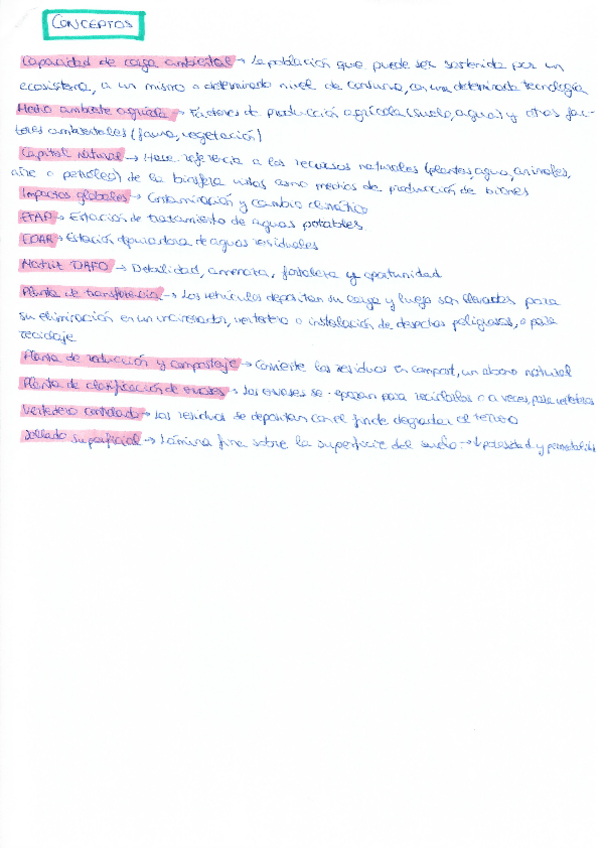 CONCEPTOS
Capacidad de carga ambiental → La población que puede ser sostenida por un
ecosistema, a un mismo o determinado nivel de consumo, con una determinada tecnología
Medio ambiente agrícola → Factores de producción agrícola (suelo, agua) y otros fac-
tores ambientales (fauna, vegetación)
Capital natural → Hace referencia a los recursos naturales (plantas, agua, animales,
aire o petróleo) de la biosfera vistos como medios de producción de bienes
Impactos globales → Contaminación y cambio climático
ETAP → Estación de tratamiento de aguas potables
EDAR → Estación depuradora de aguas residuales
Matriz DAFO → Debilidad, amenaza, fortaleza y oportunidad
Planta de transferencia → Los vehículos depositan su carga y luego son llevados para
su eliminación en un incinerador, vertedero o instalación de desechos peligrosos, o para
reciclaje
Planta de reducción y compostaje → Convierte los residuos en compost, un abono natural
Planta de clasificación de envases → Los envases se separan para reciclarlos o a veces, para vertederos
Vertedero controlado → Los residuos se depositan con el fin de degradar el
Sellado superficial → Lámina fina sobre la superficie del suelo → ↓ porosidad y